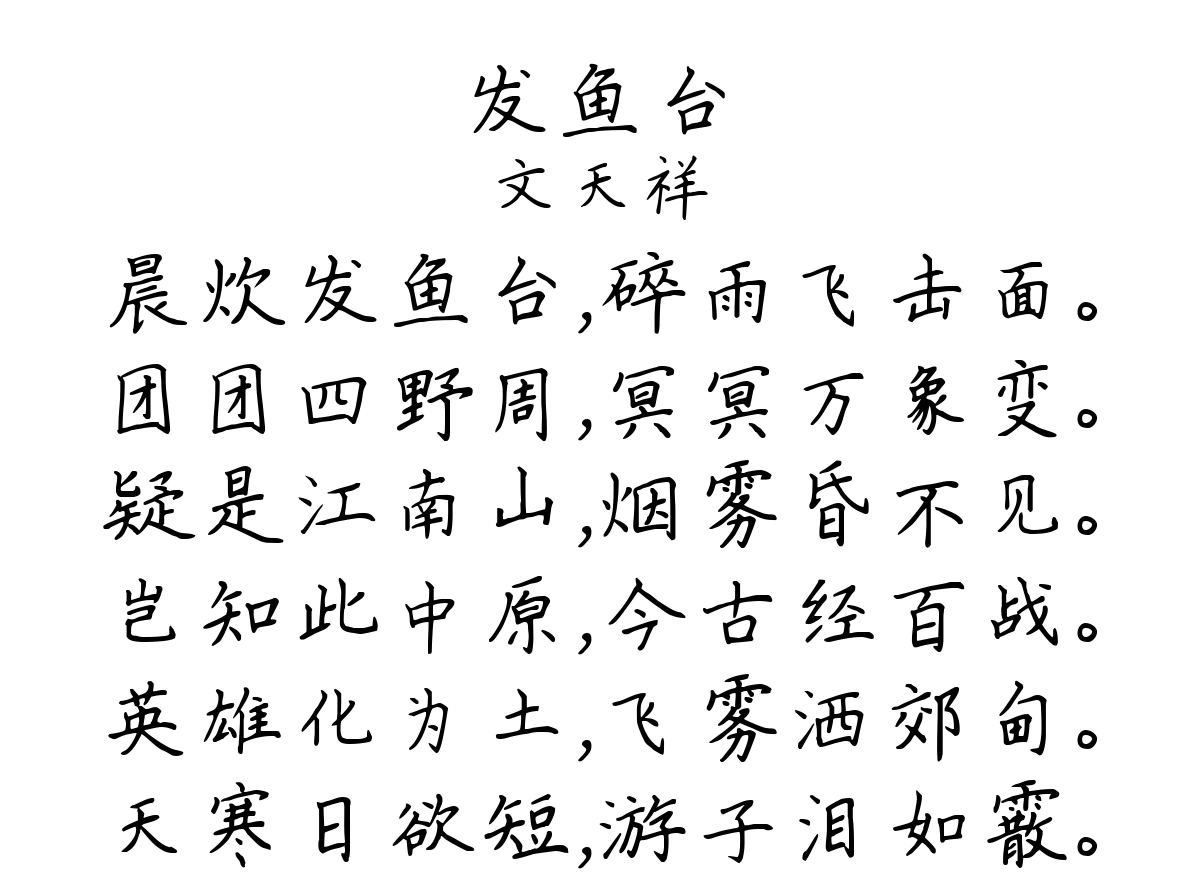 发鱼台
文天祥
晨炊发鱼台,碎雨飞击面。
团团四野周,冥冥万象变。
疑是江南山,烟雾昏不见。
岂知此中原,今古经百战。
英雄化为土,飞雾洒郊甸。
天寒日欲短,游子泪如霰。